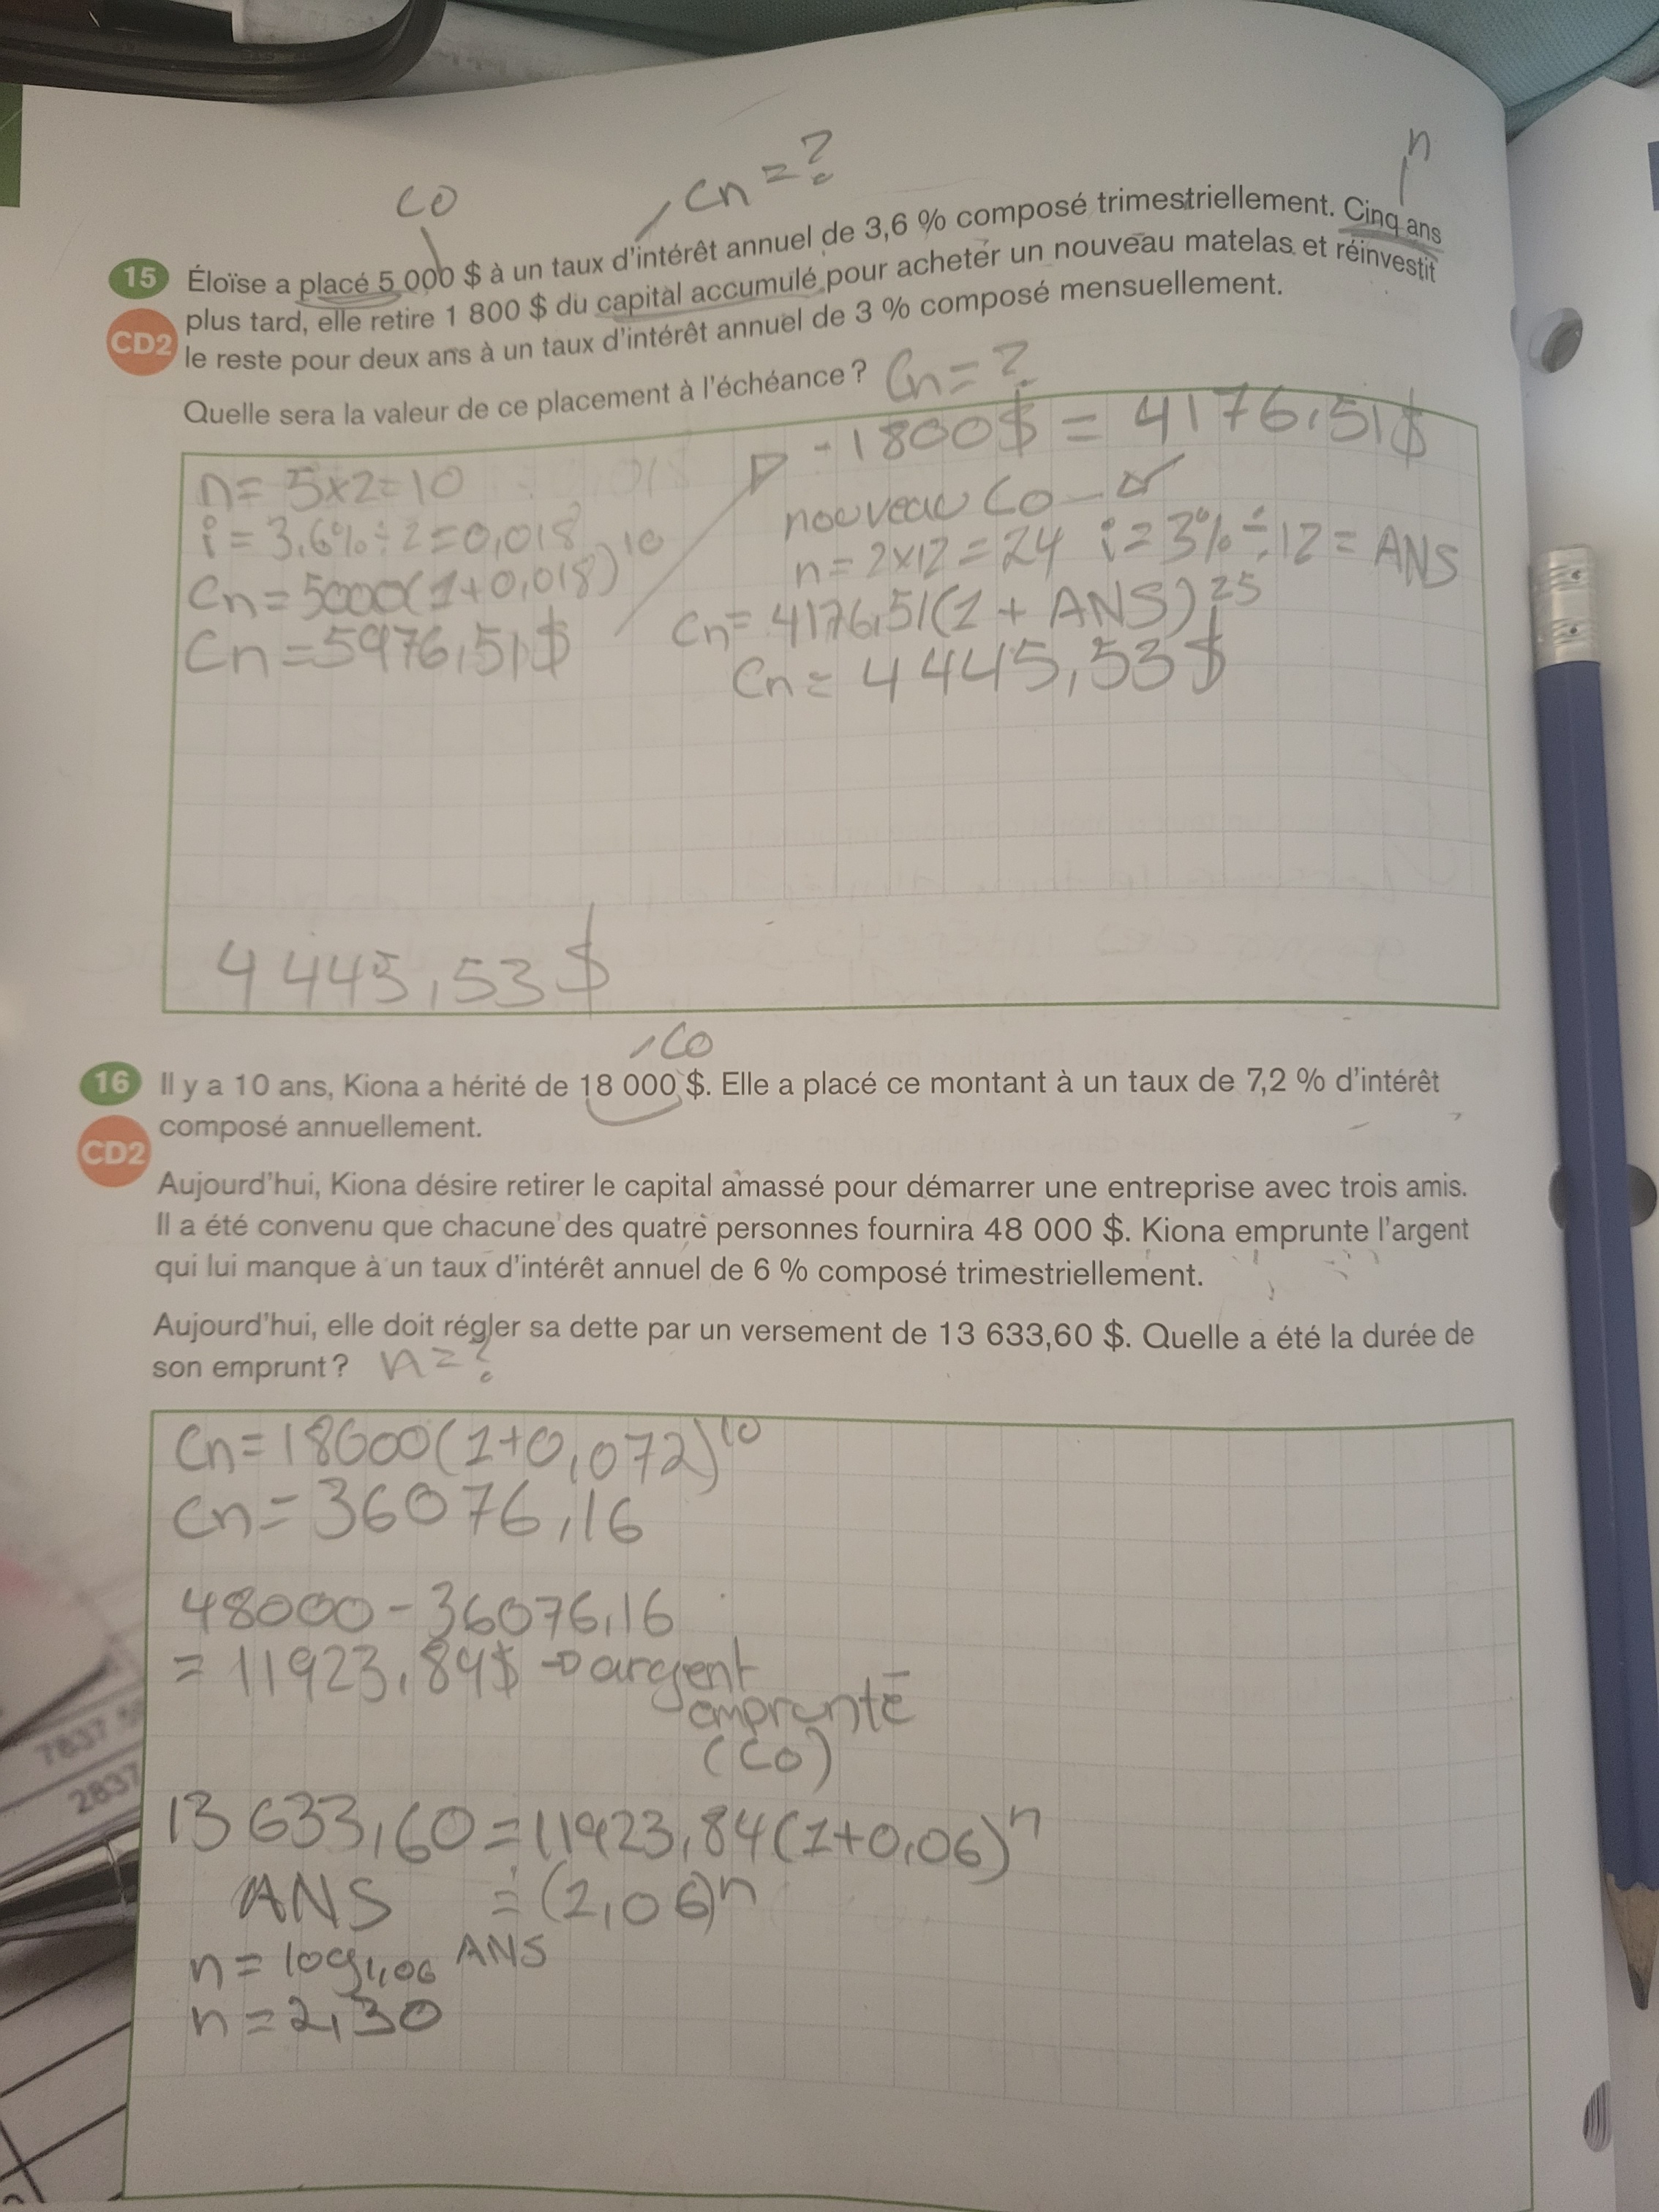 n
Co
Cn = ?
15 Éloïse a placé 5 000 $ à un taux d'intérêt annuel de 3,6 % composé trimestriellement. Cinq ans
CD2 plus tard, elle retire 1 800 $ du capital accumulé pour acheter un nouveau matelas et réinvestit
le reste pour deux ans à un taux d'intérêt annuel de 3 % composé mensuellement.
Quelle sera la valeur de ce placement à l'échéance ? Cn = ?
- 1800$ = 4176,51$
n = 5x2=10
nouveau Co
i = 3,6% ÷ 2 = 0,018
n = 2x12 = 24 i = 3% ÷ 12 = ANS
Cn = 5000(1+0,018)^10
Cn = 4176,51(1 + ANS)^25
Cn = 5976,51$
Cn = 4445,53$
4 445,53 $
Co
16 Il y a 10 ans, Kiona a hérité de 18 000 $. Elle a placé ce montant à un taux de 7,2 % d'intérêt
CD2 composé annuellement.
Aujourd'hui, Kiona désire retirer le capital amassé pour démarrer une entreprise avec trois amis.
Il a été convenu que chacune des quatre personnes fournira 48 000 $. Kiona emprunte l'argent
qui lui manque à un taux d'intérêt annuel de 6 % composé trimestriellement.
Aujourd'hui, elle doit régler sa dette par un versement de 13 633,60 $. Quelle a été la durée de
son emprunt ? n = ?
Cn = 18000(1+0,072)^10
Cn = 36076,16
48000 - 36076,16
= 11923,84$ → argent
emprunté
(Co)
13 633,60 = 11923,84(1+0,06)^n
ANS = (1,06)^n
n = log1,06 ANS
n = 2,30
7837
2837